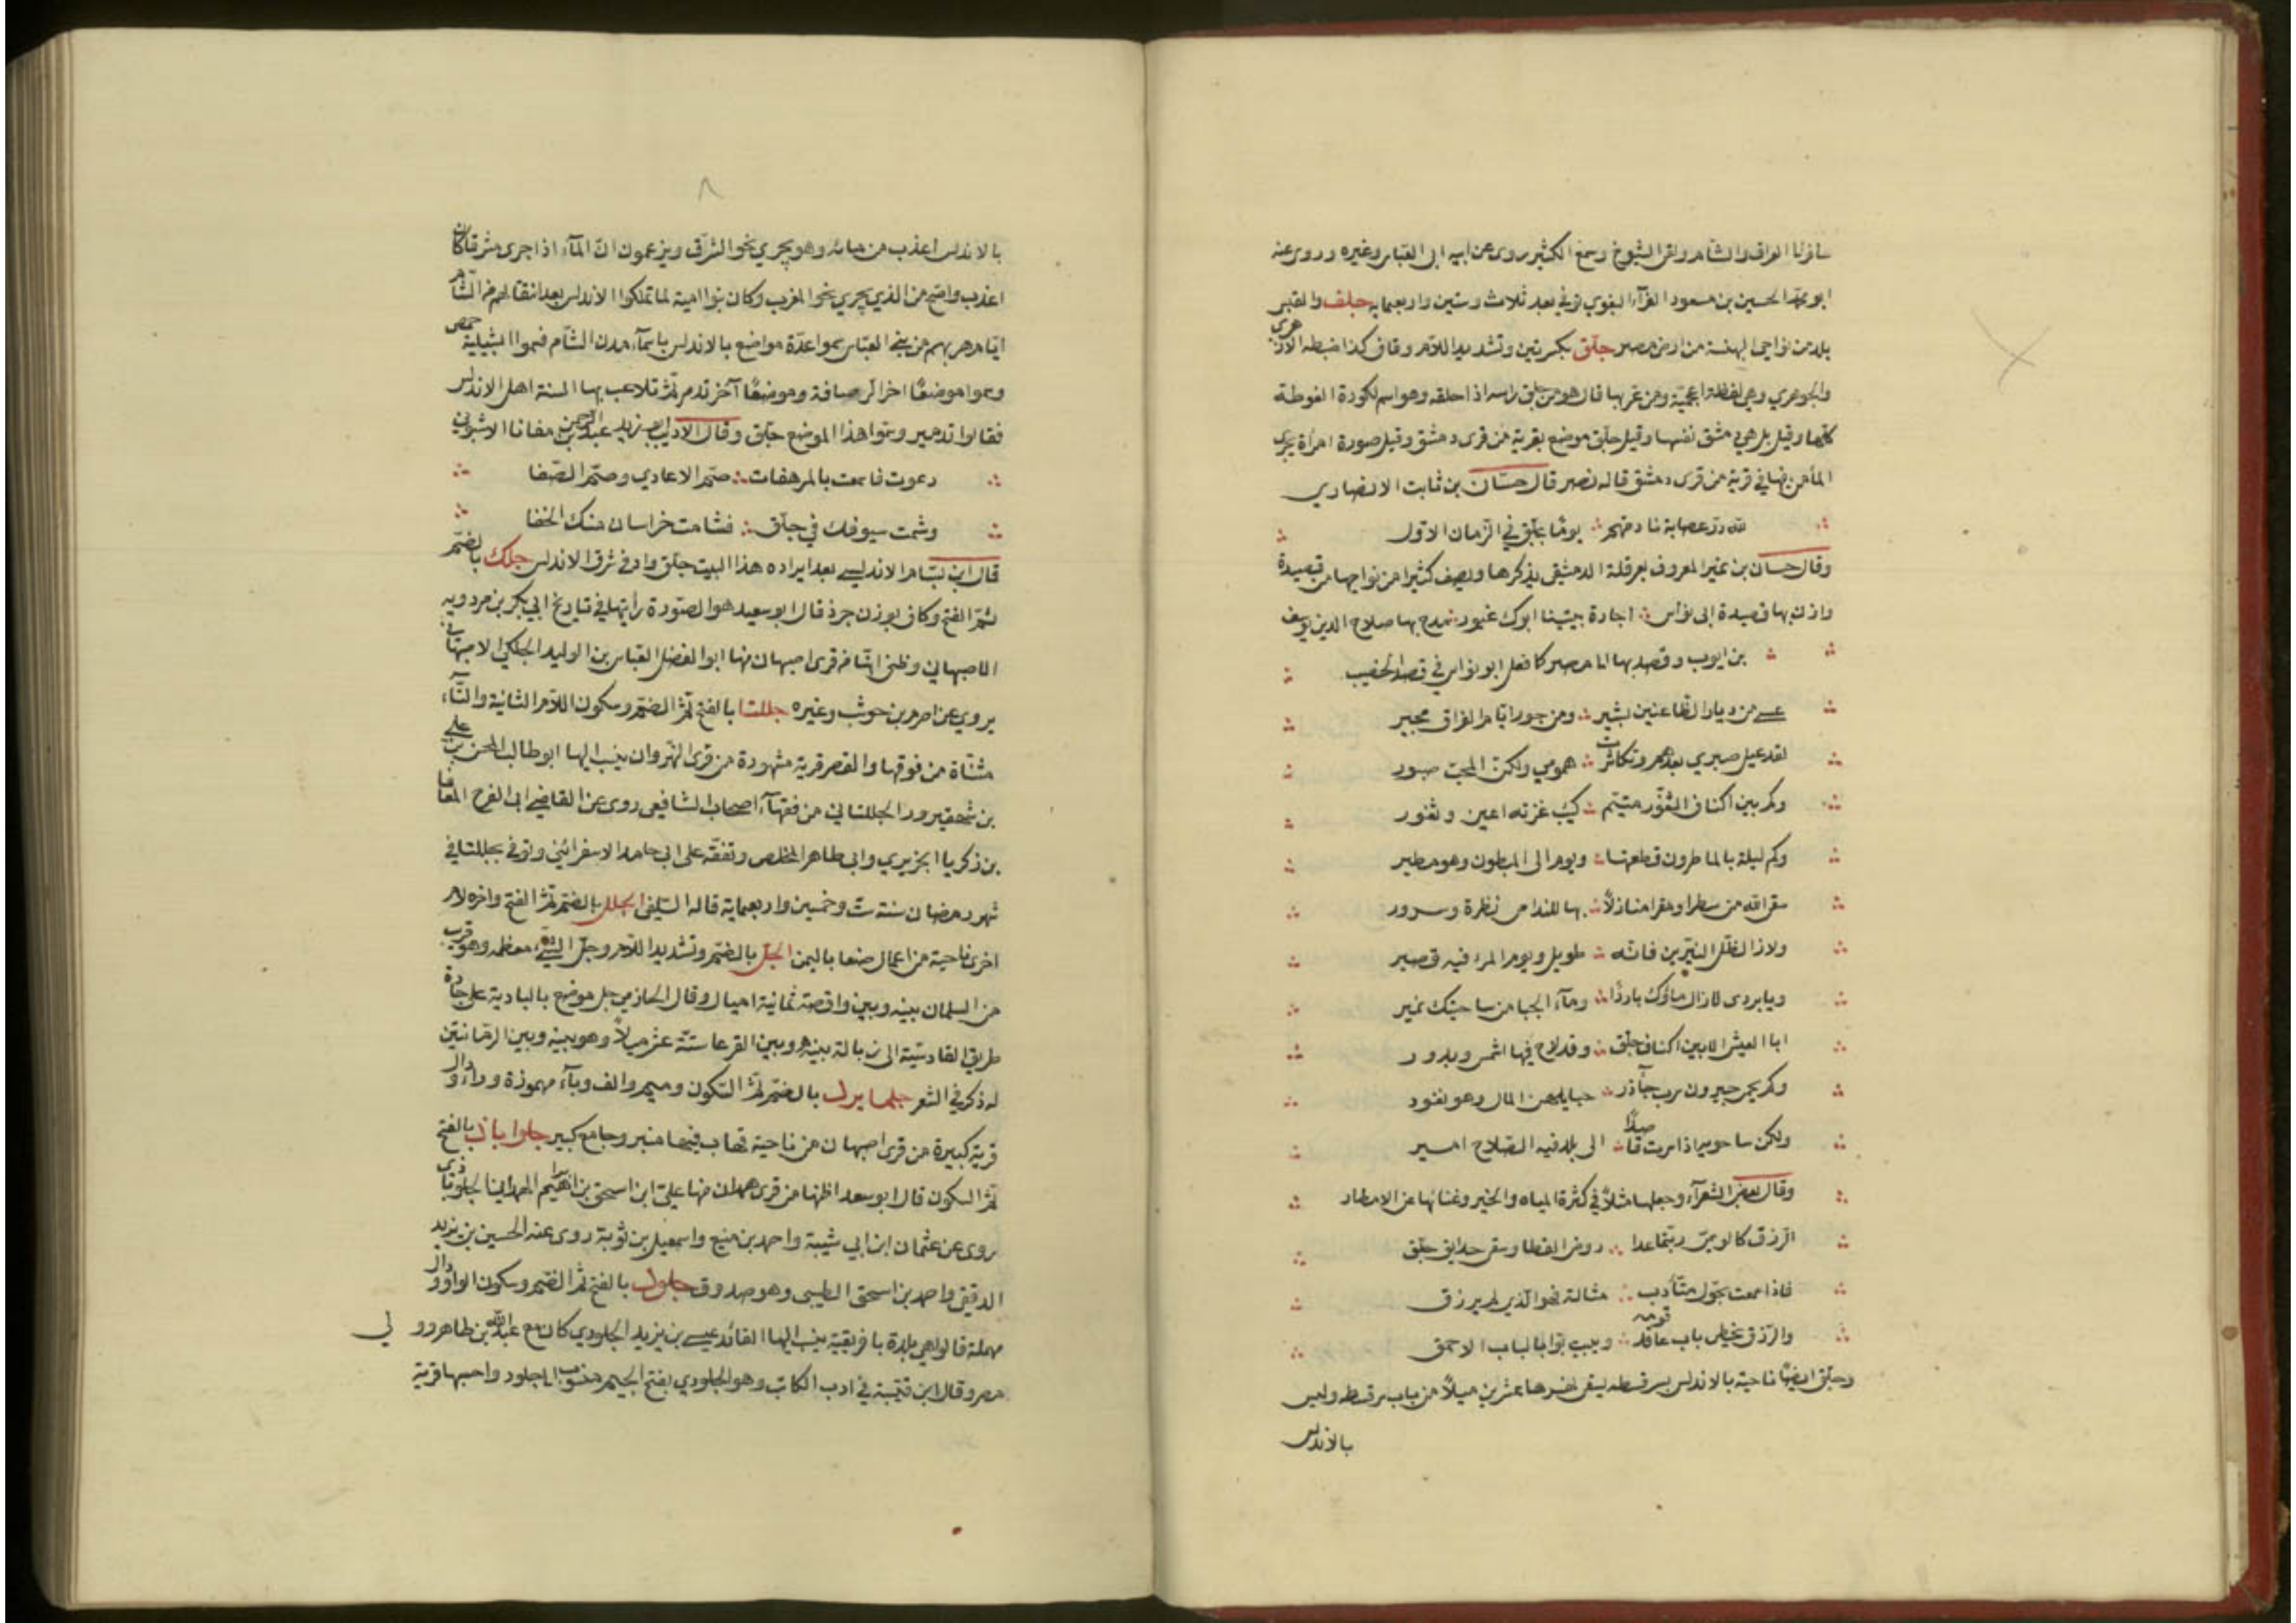 سافر الى العراق والشام ولقى الشيوخ وسمع الكثير روى عن ابيه ابى العباس وغيره وروى عنه
ابو محمد الحسين بن مسعود الفرآء البغوي توفي بعد ثلاث وستين واربعماية جلف والقبر
بلد من نواحى البهنسة من ارض مصر جلّق بكسرتين وتشديد اللام وقاف كذا ضبطه الازهرى
والجوهري وهي لفظة اعجمية ومن عربها قال هو من جلق راسه اذا حلقه وهو اسم لكورة الغوطة
كلها وقيل بل هي دمشق نفسها وقيل جلق موضع بقرية من قرى دمشق وقيل صورة امرأة يجرى
المآ من فيها في قرية من قرى دمشق قاله نصر قال حسّان بن ثابت الانصاري
لله درّ عصابة نادمتهم يومًا بجلّق في الزمان الاوّل
وقال حسان بن نمير المعروف بعرقلة الدمشقي يذكرها ويصف كثيرا من نواحيها من قصيدة
وازن بها قصيدة ابى نواس اجارة بيتينا ابوك غيور يمدح بها صلاح الدين يوسف
بن ايوب وقصد بها الى مصر كما فعل ابو نواس في قصد الخصيب
عسى من ديار الظاعنين بشير ومن جور ايام الفراق مجير
لقد عيل صبري بعدهم وتكاثرت همومي ولكنّ المحبّ صبور
وكم بين اكناف الثغور متيّم كئيب غزته اعين وثغور
وكم ليلة بالماطرون قطعتها ويوم الى الميطون وهو مطير
سقى الله من سطرا ومقرا منازلاً بها للندامى نظرة وسرور
ولا زال ظلّ النيّرين فانّه طويل ويوم المرء فيه قصير
ويا بردى لا زال ماؤك باردًا ومآء الحيا من ساحتيك نمير
ابا العيش الا بين اكناف جلّق وقد لاح فيها اشمس وبدور
وكم بحمى جيرون سرب جآذر حبايلهن المال وهو نفور
ولكن ساحويها اذا سرت قاصدًا الى بلد فيه الصلاح امير
وقال بعض الشعرآء وجعلها مثلاً في كثرة المياه والخير وغنائها عن الامطار
الرزق كالوسميّ ربّتما عدا روض القطا وسقى حدايق جلّق
فاذا سمعت بحوّل متأدب متالة فهو الذي لم يرزق
والرزق يخطى باب عاقل قومه ويبيت بوابا لباب الاحمق
وجلّق ايضًا ناحية بالاندلس بسرقسطه يسقى نهرها عشرين ميلاً من باب سرقسطه وليس
بالاندلس
٨
بالاندلس اعذب من مائه وهو يجري نحو الشرق ويزعمون انّ المآء اذا جرى مشرقا كان
اعذب واصح من الذي يجري نحو المغرب وكان بنوا امية لما تملكوا الاندلس بعد انتقالهم من الشام
ايام هربهم من بني العباس سموا عدّة مواضع بالاندلس باسمآء مدن الشام فسموا اشبيلية حمص
وسموا موضعًا اخر الرصافة وموضعًا آخر تدمر ثم تلاعب بها السنة اهل الاندلس
فقالوا تدمير وسموا هذا الموضع جلّق وقال الاديب ابو زيد عبد الرحمن بن مقانا الاشبوني
دعوت فاسمعت بالمرهفات صمّ الاعادي وصمّ الصّفا
وشمت سيوفك في جلّق فشامت خراسان منك الحفا
قال ابن بسّام الاندلسي بعد ايراده هذا البيت جلّق واد في شرق الاندلس جلك بالضم
ثم الفتح وكاف بوزن جرذ قال ابو سعيد هو الصورة رأيتها في تاريخ ابي بكر بن مردويه
الاصبهاني وظني انها من قرى اصبهان منها ابو الفضل العباس بن الوليد الجلكي الاصبهاني
يروي عن اصرم بن حوشب وغيره جللتا بالفتح ثم الضم وسكون اللام الثانية والتآء
مثناة من فوقها والقصر قرية مشهورة من قرى النهروان ينسب اليها ابو طالب المحسن بن علي
بن شهفيروز الجللتاني من فقهآء اصحاب الشافعى روى عن القاضي ابى الفرج المعافا
بن زكريا الجزيري وابى طاهر المخلص وتفقه على ابى حامد الاسفرائيني وتوفي بجللتا في
شهر رمضان سنة ست وخمسين واربعماية قاله السلفى الجلل بالضم ثم الفتح واخره لام
اخرى ناحية من اعمال صنعا باليمن الجلّ بالضم وتشديد اللام وجلّ الشيء معظمه وهو قرب
من السلمان بينه وبين واقصة ثمانية اميال وقال الحازمي جل موضع بالبادية على جادة
طريق القادسية الى زبالة بينه وبين القرعا ستة عشر ميلاً وهو بينه وبين الرمانتين
له ذكر في الشعر جلمايرد بالضم ثم السكون وميم والف وبآء مهموزة ورآء ودال
قرية كبيرة من قرى اصبهان من ناحية قهاب فيها منبر وجامع كبير جلوابان بالفتح
ثم السكون قال ابو سعد اظنها من قرى همدان منها علي ابن اسحق بن ابراهيم الهمداني
روى عن عثمان ابن ابي شيبة واحمد بن منيع واسمعيل بن توبة روى عنه الحسين بن يزيد
الدقيقي واحمد بن اسحق الطيبي وهو صدوق جلود بالفتح ثم الضم وسكون الواو ودال
مهملة قالوا هي بلدة بافريقية ينسب اليها القائد عيسى بن يزيد الجلودي كان مع عبد الله بن طاهر وولي
مصر وقال ابن قتيبة في ادب الكاتب وهو الجلودي بفتح الجيم منسوب الى جلود واحسبها قرية